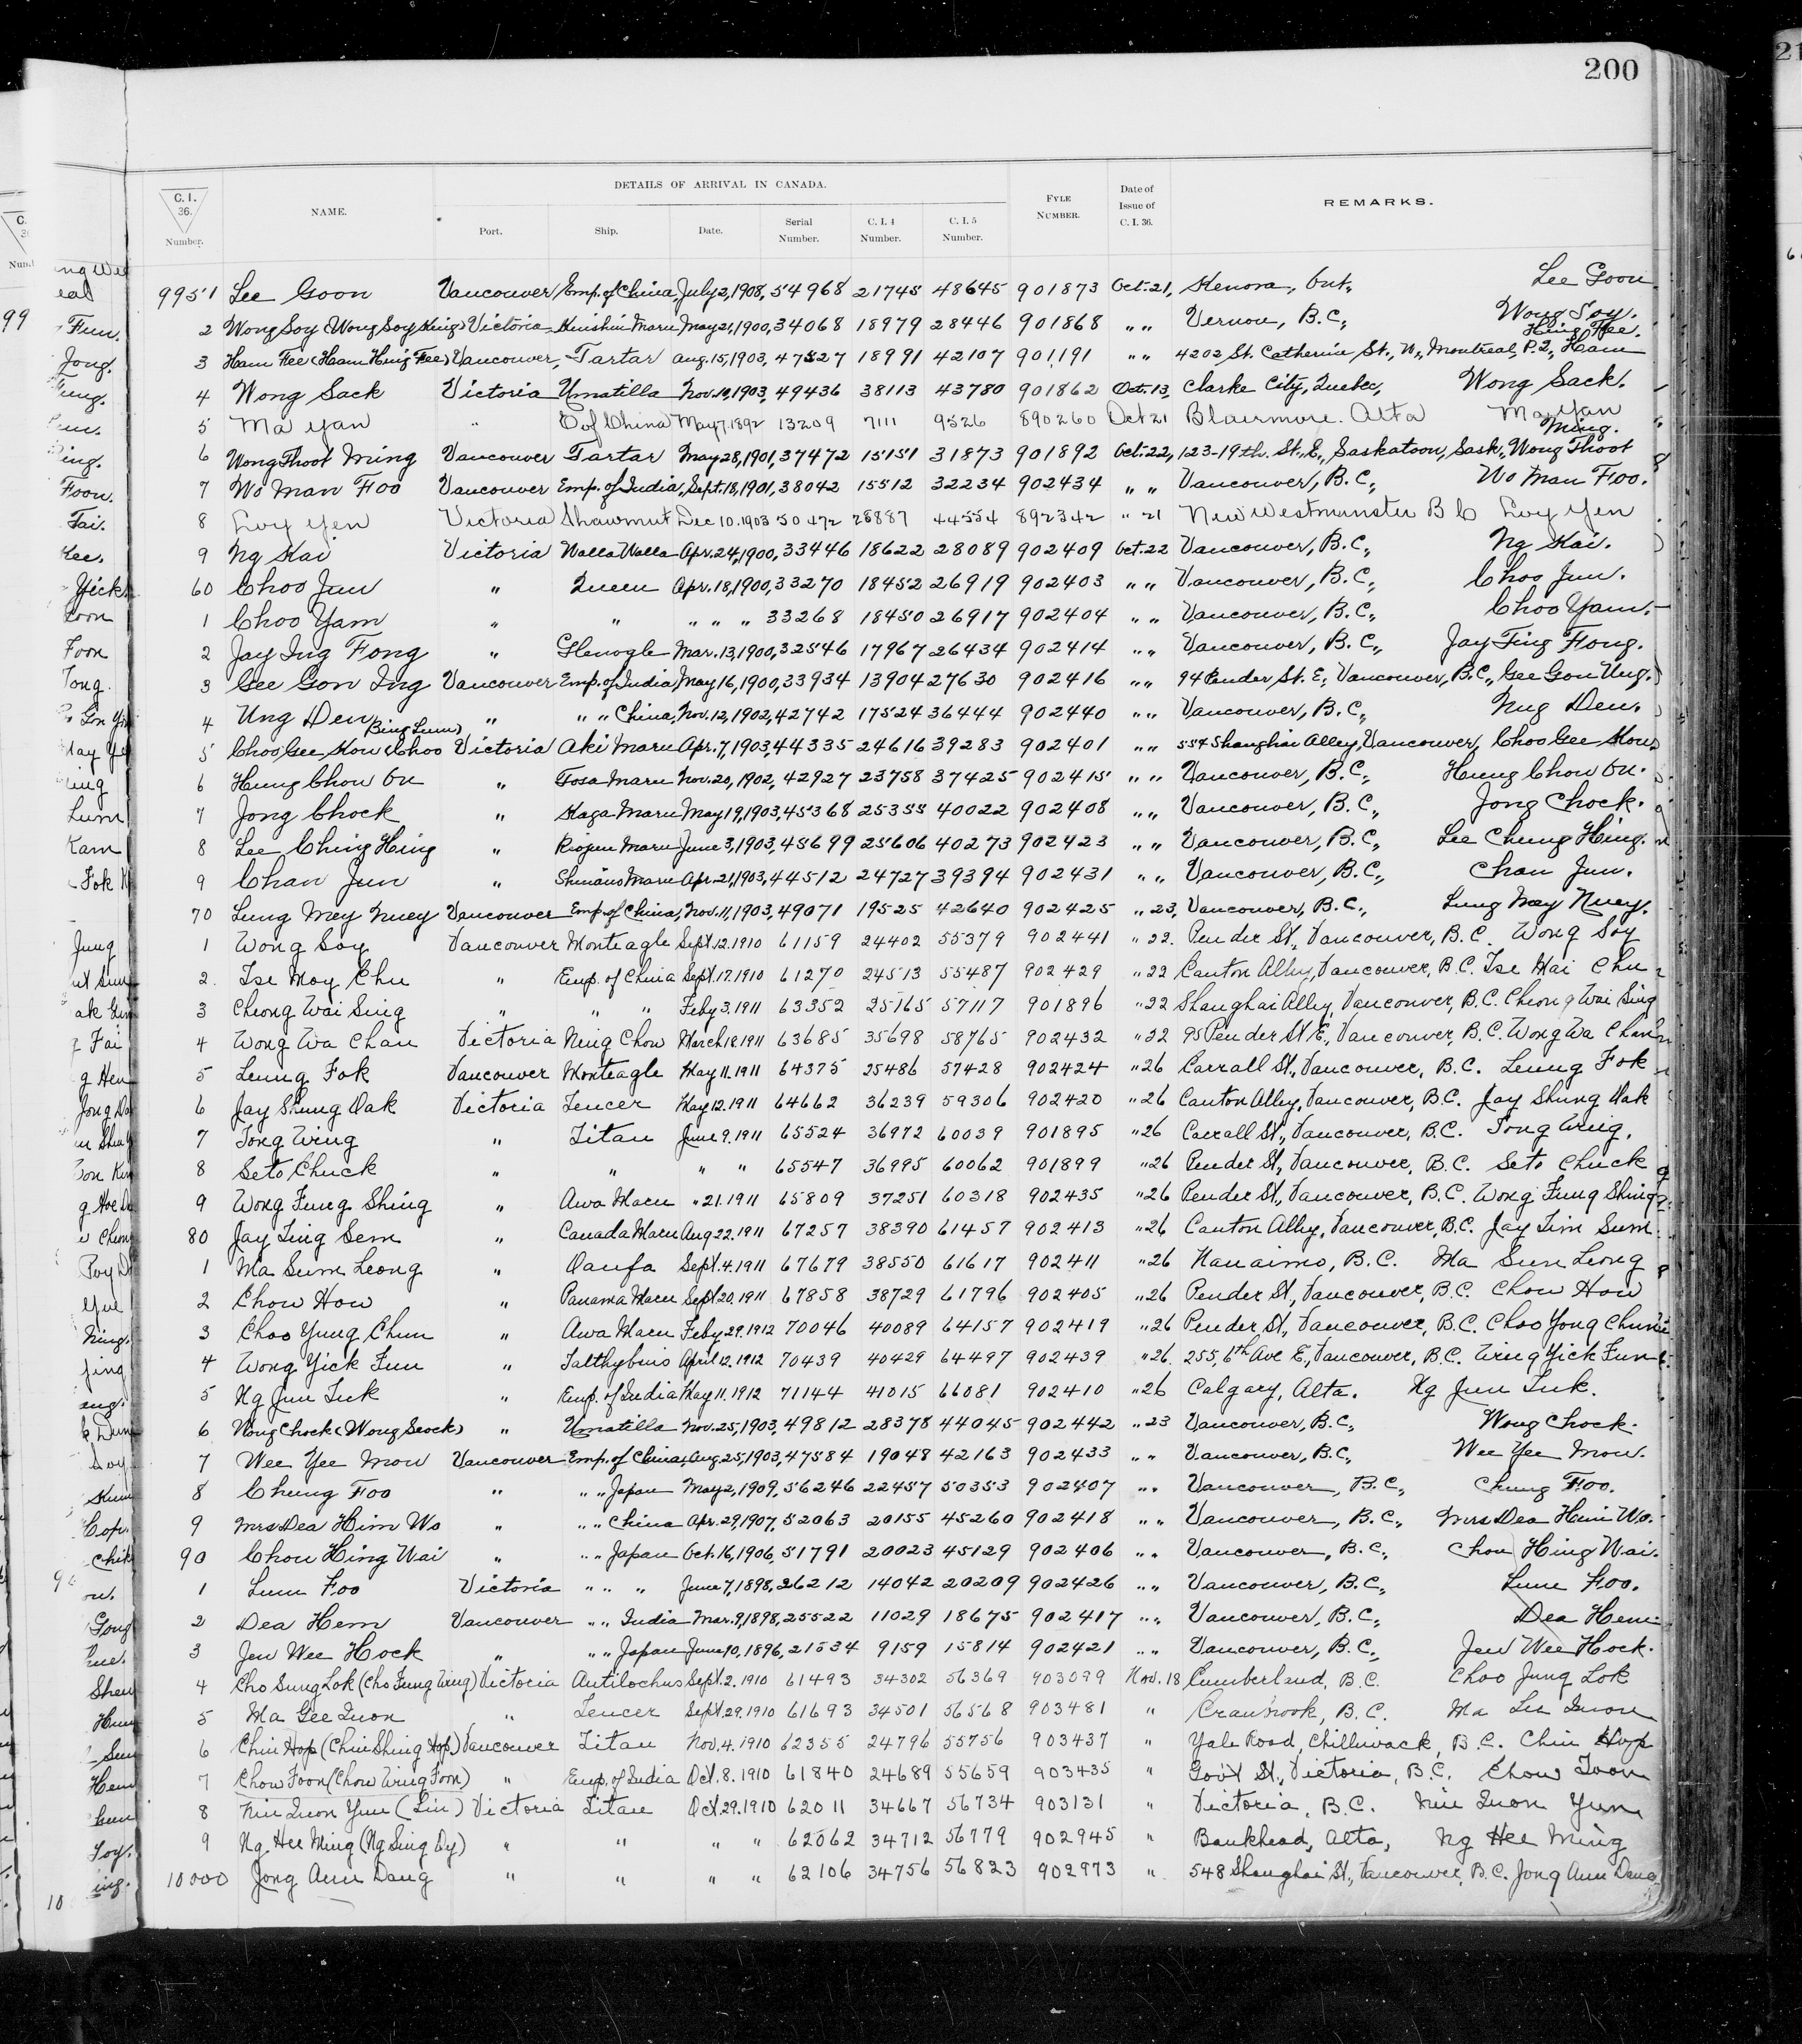 200
DETAILS OF ARRIVAL IN CANADA.
C. I. 36. Number. NAME. Port. Ship. Date. Serial Number. C. I. 4 Number. C. I. 5 Number. FYLE NUMBER. Date of Issue of C. I. 36. REMARKS.
9951 Lee Goon Vancouver Emp. of China, July 2, 1908, 54968 21745 48645 901873 Oct. 21, Kenora, Ont., Lee Goon
2 Wong Soy (Wong Soy King) Victoria Kinshiu Maru May 21, 1900, 34068 18979 28446 901868 " " Vernon, B.C., Wong Soy.
3 Ham Fee (Haam Hing Fee) Vancouver, Tartar Aug. 15, 1903, 47527 18991 42107 901191 " " 4202 St. Catherine St., W., Montreal, P.Q., Ham Hing Fee.
4 Wong Sack Victoria Umatilla Nov. 10, 1903, 49436 38113 43780 901862 Oct. 13, Clarke City, Quebec, Wong Sack.
5 Ma Yan " E of China May 7. 1892 13209 7111 9526 890260 Oct 21 Blairmore. Alta Ma Yan
6 Wong Thoot Ming Vancouver Tartar May 28, 1901, 37472 15151 31873 901892 Oct. 22, 123-19th. St., E., Saskatoon, Sask., Wong Thoot Ming.
7 Wo Man Foo Vancouver Emp. of India, Sept. 18, 1901, 38042 15512 32234 902434 " " Vancouver, B.C., Wo Man Foo.
8 Loy Yen Victoria Shawmut Dec 10. 1903 50472 28887 44554 892342 " 21 New Westminster B C Loy Yen
9 Ng Kai Victoria Walla Walla Apr. 24, 1900, 33446 18622 28089 902409 Oct. 22 Vancouver, B.C., Ng Kai.
60 Choo Jun " Queen Apr. 18, 1900, 33270 18452 26919 902403 " " Vancouver, B.C., Choo Jun.
1 Choo Yam " " " " " 33268 18450 26917 902404 " " Vancouver, B.C., Choo Yam.
2 Jay Ing Fong " Glenogle Mar. 13, 1900, 32546 17967 26434 902414 " " Vancouver, B.C., Jay Ting Fong.
3 Gee Gon Ing Vancouver Emp. of India, May 16, 1900, 33934 13904 27630 902416 " " 94 Pender St. E., Vancouver, B.C., Gee Gon Ung.
4 Ung Den " " " China, Nov. 12, 1902, 42742 17524 36444 902440 " " Vancouver, B.C., Nug Den.
5 Choo Gee Kow (Choo Bing Lum) Victoria Aki Maru Apr. 7, 1903, 44335 24616 39283 902401 " " 554 Shanghai Alley, Vancouver, Choo Gee Kow
6 Hung Chow On " Tosa Maru Nov. 20, 1902, 42927 23758 37425 902415 " " Vancouver, B.C., Hung Chow On.
7 Jong Chock " Kaga Maru May 19, 1903, 45368 25355 40022 902408 " " Vancouver, B.C., Jong Chock.
8 Lee Ching Hing " Riojun Maru June 3, 1903, 45699 25606 40273 902423 " " Vancouver, B.C., Lee Chung Hing.
9 Chan Jun " Shinano Maru Apr. 21, 1903, 44512 24727 39394 902431 " " Vancouver, B.C., Chan Jun.
70 Lung Mey Nuey Vancouver Emp. of China, Nov. 11, 1903, 49071 19525 42640 902425 " 23, Vancouver, B.C., Lung May Nuey.
1 Wong Soy Vancouver Monteagle Sept. 12. 1910 61159 24402 55379 902441 " 22. Pender St., Vancouver, B.C. Wong Soy
2. Tse Moy Chu " Emp. of China Sept. 17. 1910 61270 24513 55487 902429 " 22 Canton Alley, Vancouver, B.C. Tse Mai Chu
3 Cheong Wai Sing " " " Feby 3. 1911 63352 25165 57117 901896 " 22 Shanghai Alley, Vancouver, B.C. Cheong Wai Sing
4 Wong Wa Chan Victoria Ning Chow March 18. 1911 63685 35698 58765 902432 " 22 95 Pender St. E., Vancouver, B.C. Wong Wa Chan
5 Leung Fok Vancouver Monteagle May 11. 1911 64375 25486 57428 902424 " 26 Carrall St., Vancouver, B.C. Leung Fok
6 Jay Shung Dak Victoria Teucer May 12. 1911 64662 36239 59306 902420 " 26 Canton Alley, Vancouver, B.C. Jay Shung Dak
7 Tong Wing " Titan June 9. 1911 65524 36972 60039 901895 " 26 Carrall St., Vancouver, B.C. Tong Wing.
8 Seto Chuck " " " " 65547 36995 60062 901899 " 26 Pender St., Vancouver, B.C. Seto Chuck
9 Wong Fung Shing " Awa Maru " 21. 1911 65809 37251 60318 902435 " 26 Pender St., Vancouver, B.C. Wong Fung Shing
80 Jay Ting Sem " Canada Maru Aug 22. 1911 67257 38390 61457 902413 " 26 Canton Alley, Vancouver, B.C. Jay Tim Sum.
1 Ma Sum Leong " Oanfa Sept. 4. 1911 67679 38550 61617 902411 " 26 Nanaimo, B.C. Ma Sun Leong
2 Chow How " Panama Maru Sept 20. 1911 67858 38729 61796 902405 " 26 Pender St., Vancouver, B.C. Chow How
3 Choo Yung Chun " Awa Maru Feby 29. 1912 70046 40089 64157 902419 " 26 Pender St., Vancouver, B.C. Choo Yong Chun
4 Wong Yick Fun " Talthybius April 12. 1912 70439 40429 64497 902439 " 26. 255, 6th Ave E., Vancouver, B.C. Wing Yick Fun
5 Ng Jun Tuk " Emp. of India May 11. 1912 71144 41015 66081 902410 " 26 Calgary, Alta. Ng Jun Tuk.
6 Wong Chock (Wong Seock) " Umatilla Nov. 25, 1903, 49812 28378 44045 902442 " 23 Vancouver, B.C., Wong Chock.
7 Wee Yee Mow Vancouver Emp. of China, Aug. 25, 1903, 47584 19048 42163 902433 " " Vancouver, B.C., Wee Yee Mow.
8 Chung Foo " " " Japan May 2, 1909, 56246 22457 50353 902407 " " Vancouver, B.C., Chung Foo.
9 Mrs Dea Him Wo " " " China Apr. 29, 1907, 52063 20155 45260 902418 " " Vancouver, B.C., Mrs Dea Him Wo.
90 Chou Hing Wai " " " Japan Oct. 16, 1906, 51791 20023 45129 902406 " " Vancouver, B.C., Chou Hing Wai.
1 Lum Foo Victoria " " " June 7, 1898, 26212 14042 20209 902426 " " Vancouver, B.C., Lum Foo.
2 Dea Hem Vancouver " " India Mar. 9, 1898, 25522 11029 18675 902417 " " Vancouver, B.C., Dea Hem
3 Jew Wee Hock " " " Japan June 10, 1896, 21534 9159 15814 902421 " " Vancouver, B.C., Jew Wee Hock.
4 Cho Sung Lok (Cho Fung Wing) Victoria Antilochus Sept. 2. 1910 61493 34302 56369 903099 Nov. 18 Cumberland, B.C. Choo Jung Lok
5 Ma Gee Quon " Teucer Sept. 29. 1910 61693 34501 56568 903481 " Cranbrook, B.C. Ma Quon
6 Chin Hop (Chin Shing Hop) Vancouver Titan Nov. 4. 1910 62355 24796 55756 903437 " Yale Road, Chilliwack, B.C. Chin Hop
7 Chow Foon (Chow Wing Foon) " Emp. of India Oct. 8. 1910 61840 24689 55659 903435 " Gov't St., Victoria, B.C. Chow Foon
8 Nin Quon Yun (Lin) Victoria Titan Oct. 29. 1910 62011 34667 56734 903131 " Victoria, B.C. Nin Quon Yun
9 Ng Hee Ming (Ng Sing Oy) " " " " 62062 34712 56779 902945 " Bankhead, Alta, Ng Hee Ming
10000 Jong Ann Dang " " " " 62106 34756 56823 902973 " 548 Shanghai St., Vancouver, B.C. Jong Ann Dang